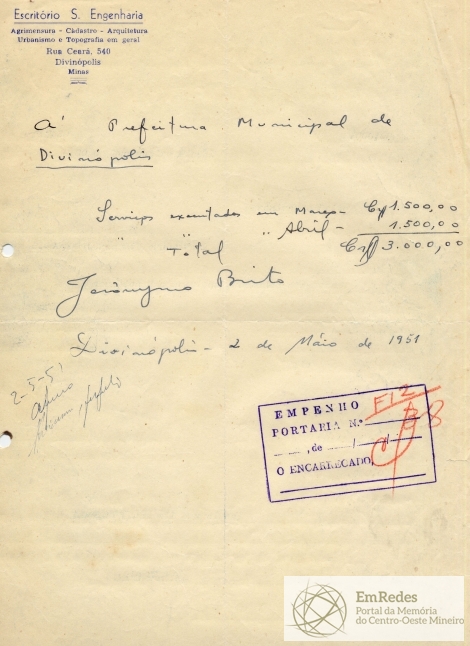 Escritório S. Engenharia
Agrimensura - Cádastro - Arquitetura
Urbanismo e Topografia em geral
Rua Ceará, 540
Divinópolis
Minas
A' Prefeitura Municipal de
Divinópolis
Serviços executados em Março - Cr$ 1.500,00
" " " Abril - 1.500,00
Total Cr$ 3.000,00
Jerônymo Brito
Divinópolis - 2 de Máio de 1951
2-5-51
EMPENHO F12
PORTARIA N.º B8
, de / /
O ENCARREGADO,
EmRedes
Portal da Memória
do Centro-Oeste Mineiro